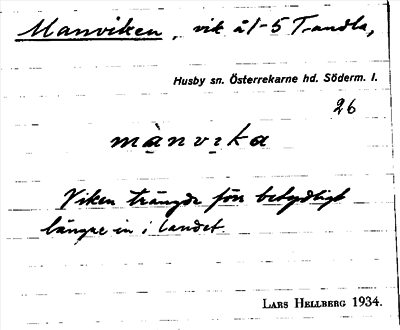 Manviken, vik å 1-5 Trandla,
Husby sn. Österrekarne hd. Söderm. l.
26
mànvịka
Viken trängde förr betydligt
längre in i landet
LARS HELLBERG 1934.